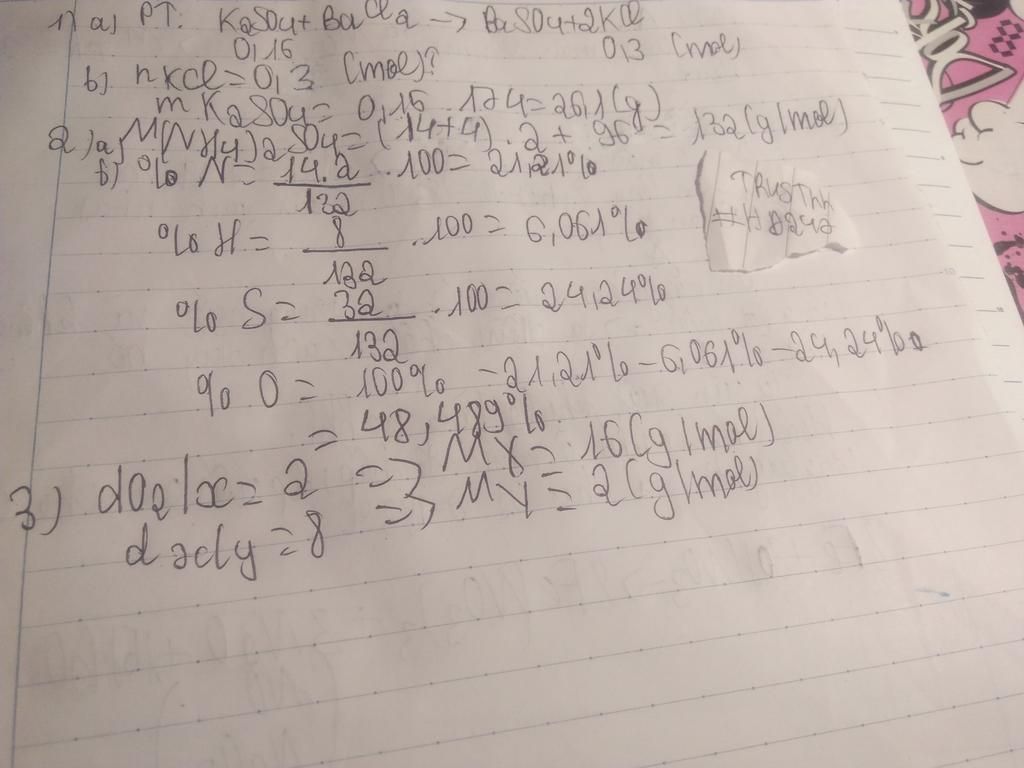 1) a) PT: K2SO4 + BaCl2 → BaSO4 + 2KCl
0,15 0,3 (mol)
b) nKCl = 0,3 (mol)?
mK2SO4 = 0,15 . 174 = 26,1 (g)
2) a) M(NH4)2SO4 = (14+4) . 2 + 96 = 132 (g/mol)
b) % N = 14.2/132 .100 = 21,21%
% H = 8/132 .100 = 6,061%
% S = 32/132 .100 = 24,24%
% O = 100% - 21,21% - 6,061% - 24,24%
= 48,489%
3) dO2/x = 2 => MX = 16 (g/mol)
dx/y = 8 => MY = 2 (g/mol)